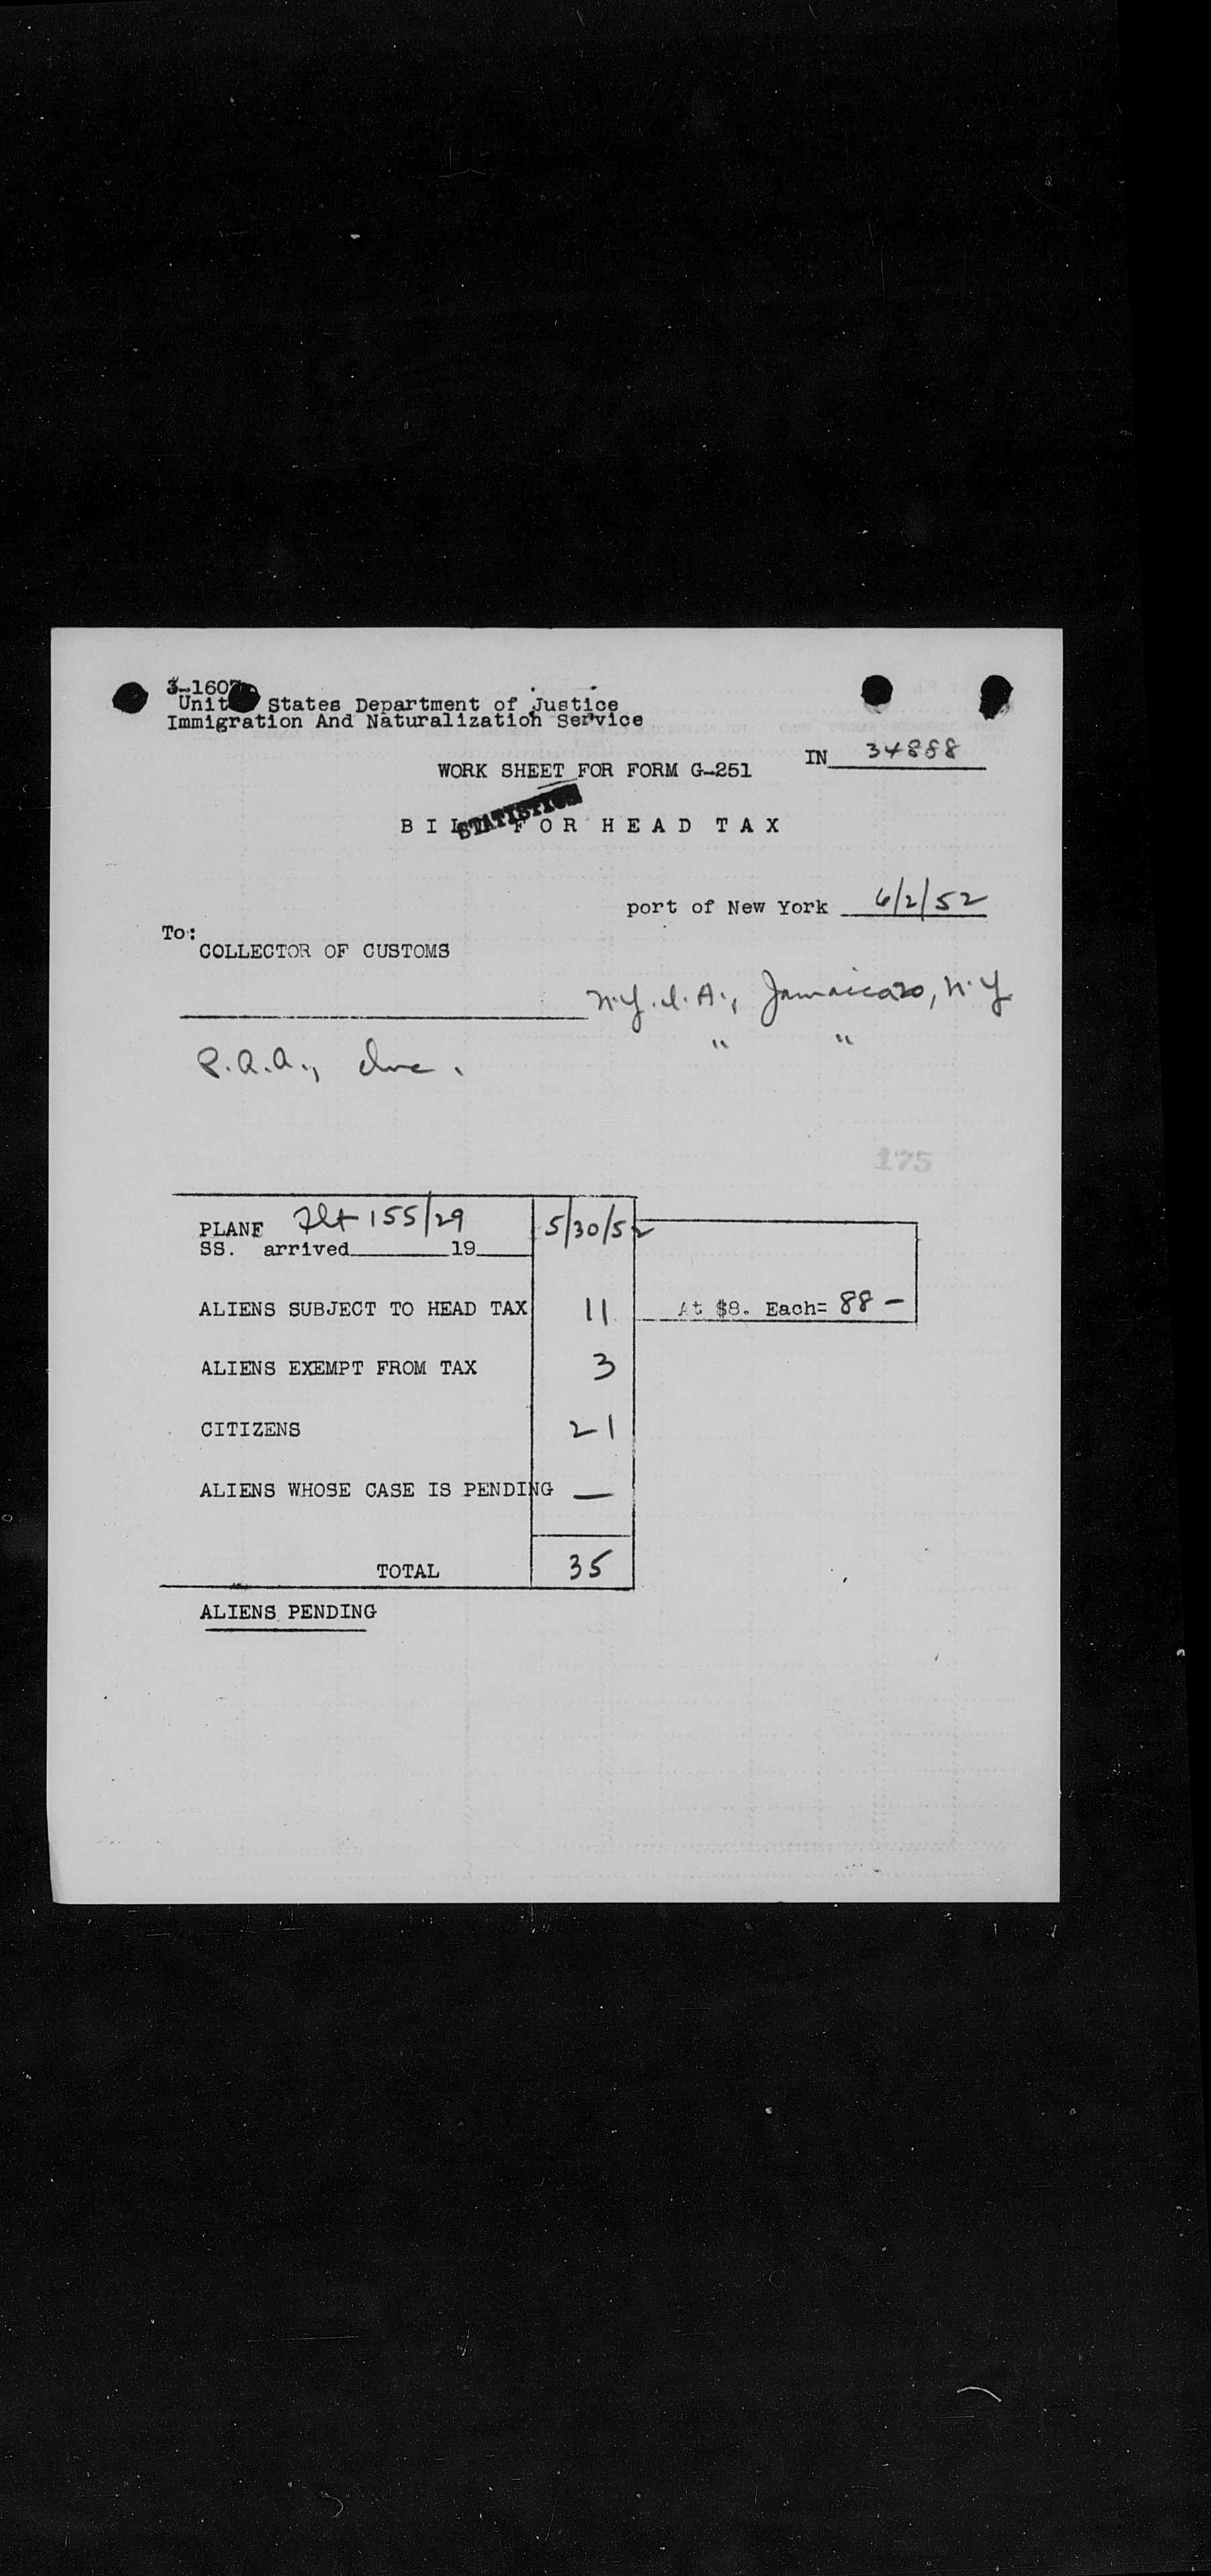 3-1607
United States Department of Justice
Immigration And Naturalization Service
IN 34888
WORK SHEET FOR FORM G-251
STATISTICS
BILL FOR HEAD TAX
port of New York 6/2/52
To:
COLLECTOR OF CUSTOMS
N.Y.I.A., Jamaica 20, N.Y
P.A.A., Inc. " "
175
PLANE Flt 155/29 5/30/52
SS. arrived 19
ALIENS SUBJECT TO HEAD TAX 11 At $8. Each= 88 -
ALIENS EXEMPT FROM TAX 3
CITIZENS 21
ALIENS WHOSE CASE IS PENDING —
TOTAL 35
ALIENS PENDING